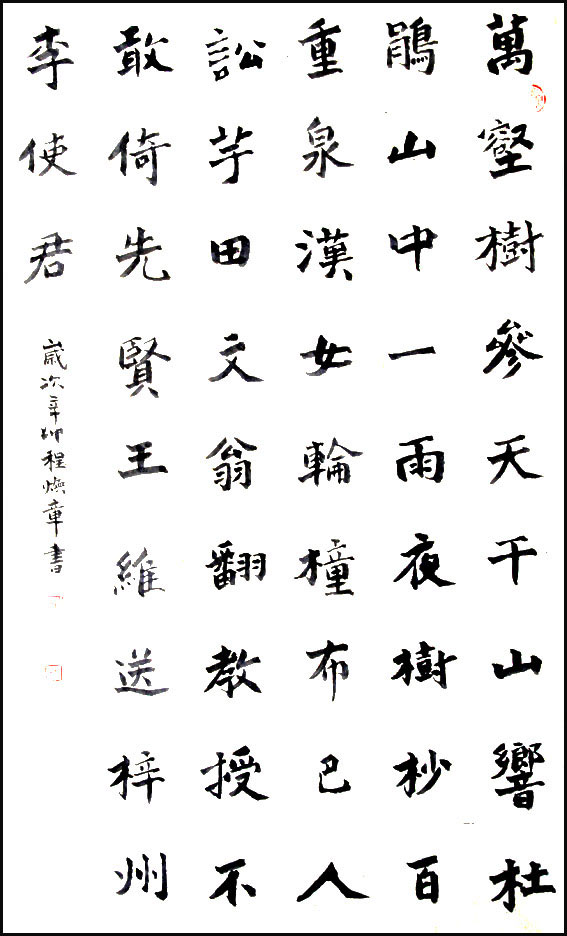 萬壑樹參天干山響杜
鵑山中一雨夜樹杪百
重泉漢女輪橦布巴人
訟芋田文翁翻教授不
敢倚先賢王維送梓州
李使君
歲次辛卯程煥章書